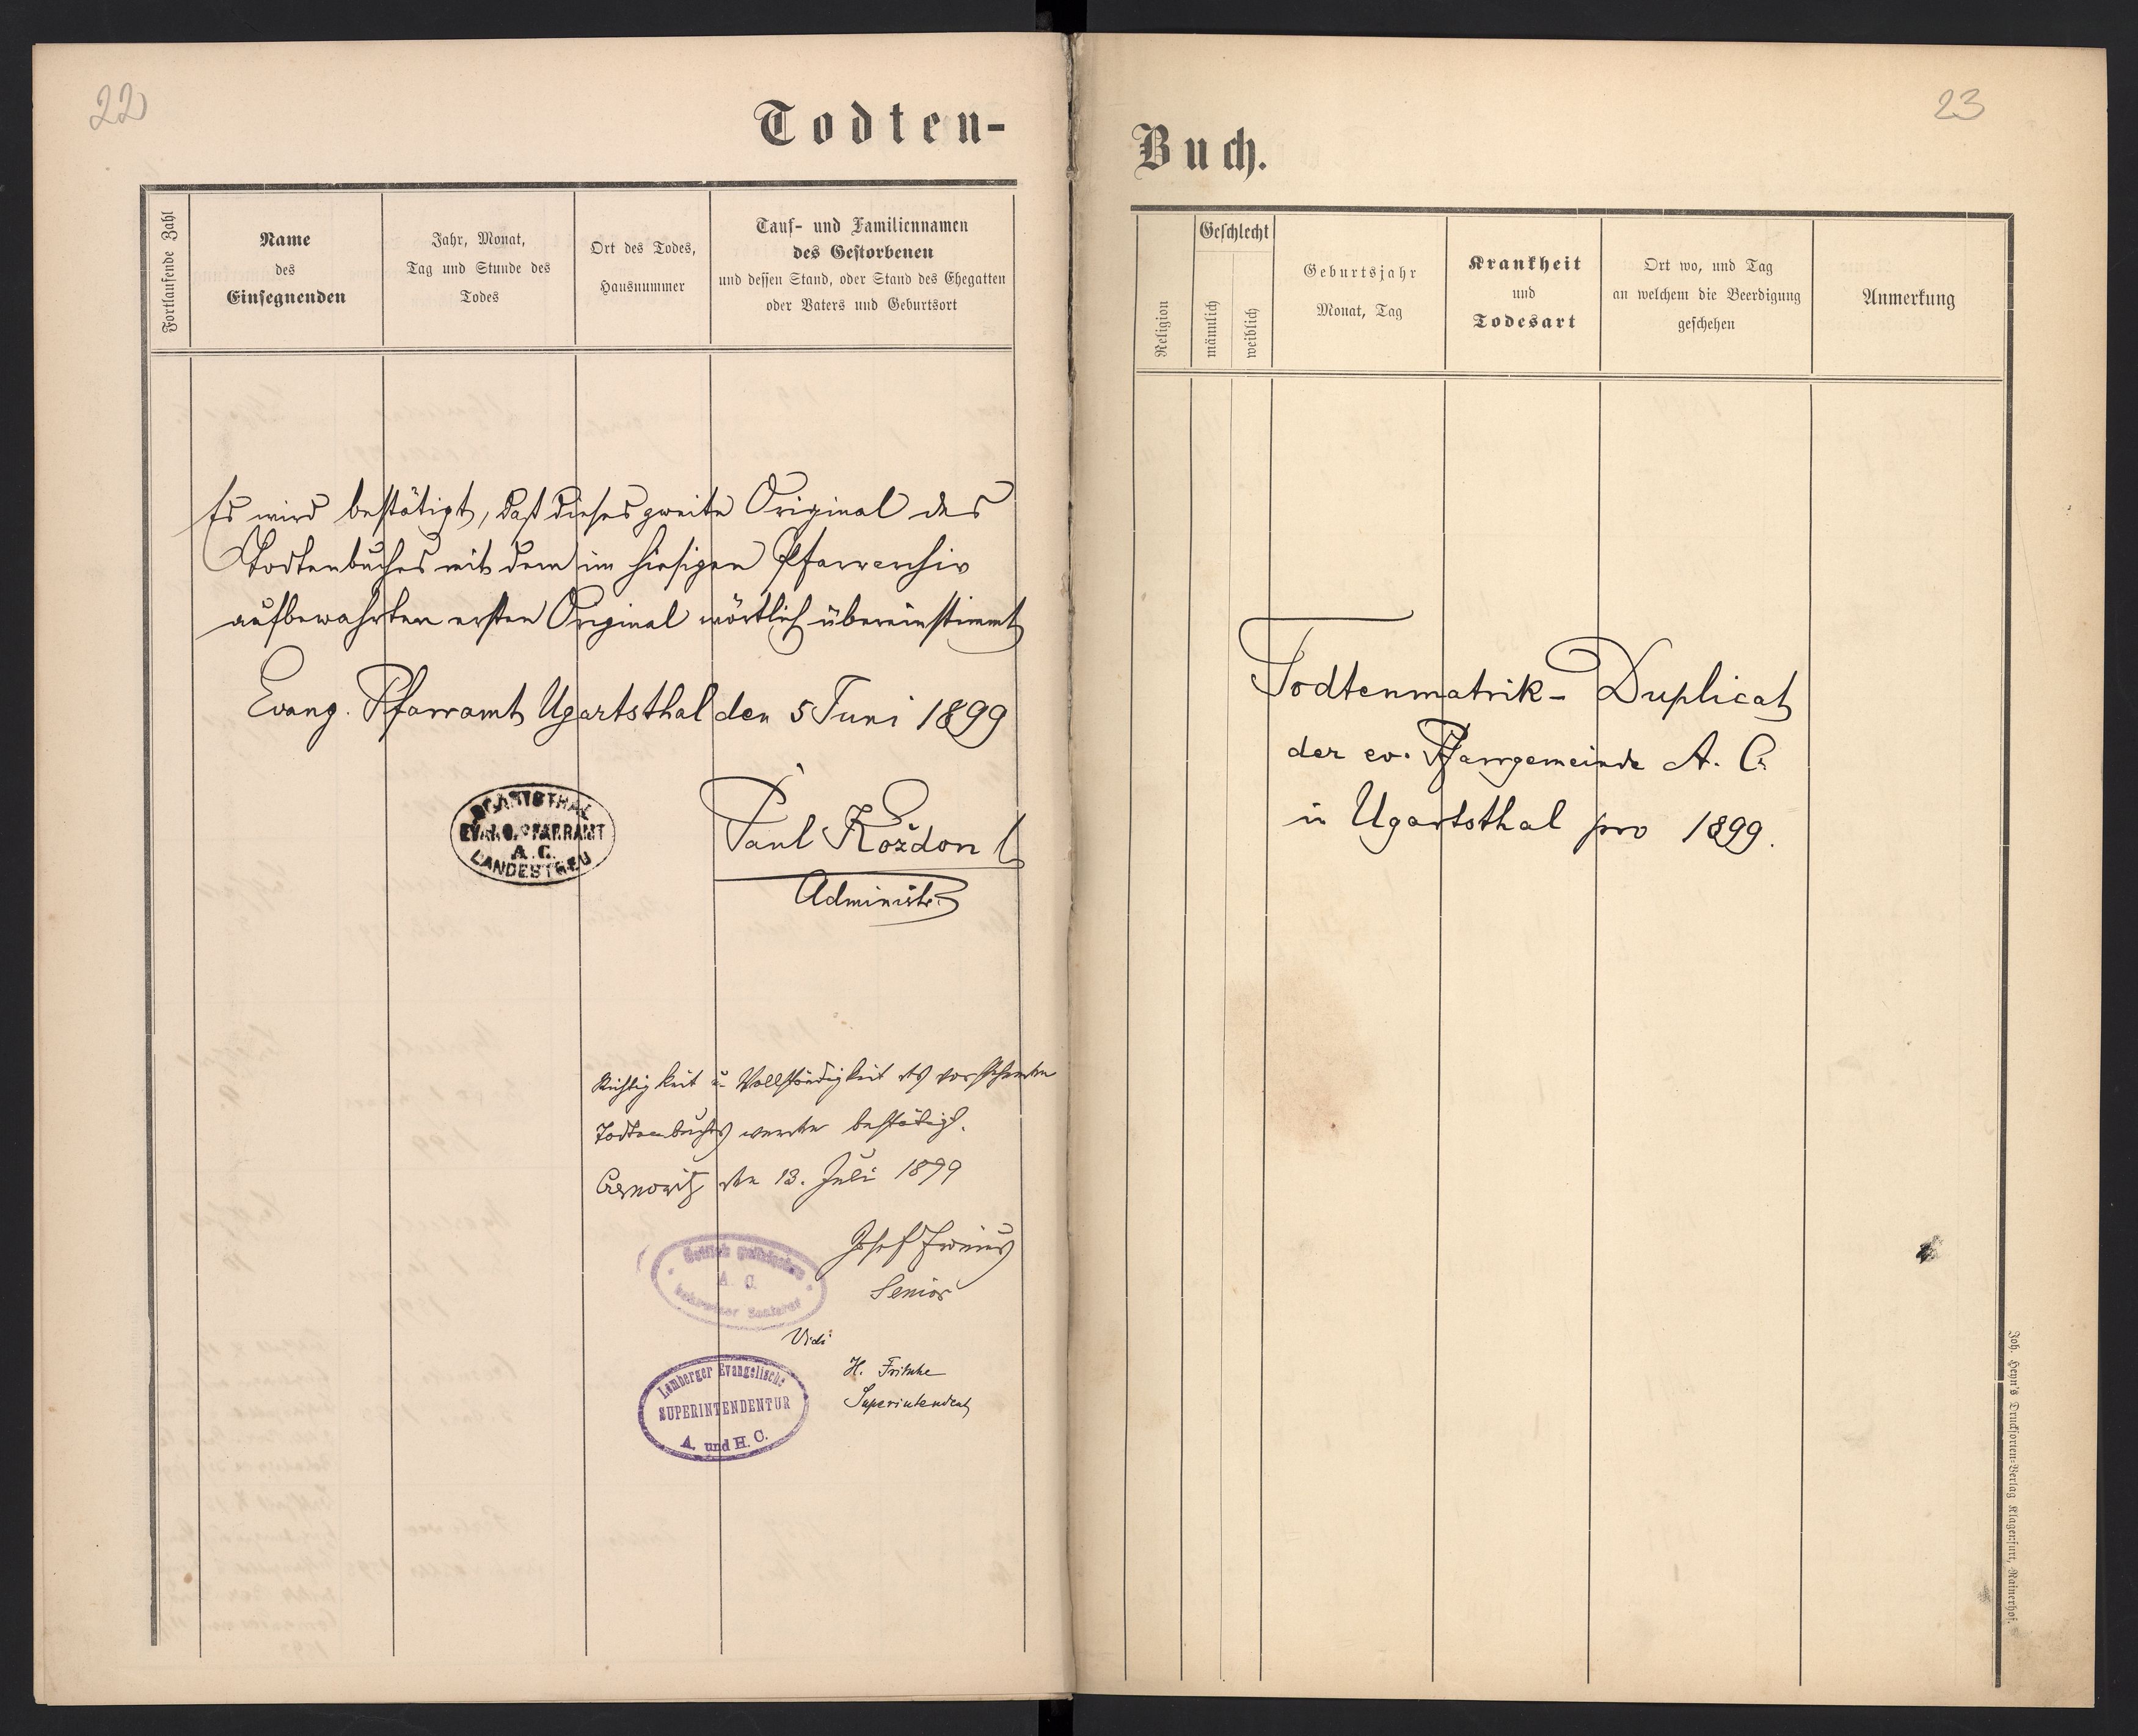 22
Todten-
Fortlaufende Zahl
Name
des
Einsegnenden
Jahr, Monat,
Tag und Stunde des
Todes
Ort des Todes,
Hausnummer
Tauf- und Familiennamen
des Gestorbenen
und dessen Stand, oder Stand des Ehegatten
oder Vaters und Geburtsort
Es wird bestätigt, daß dieses zweite Original des
Todtenbuches mit dem im hiesigen Pfarrarchiv
aufbewahrten ersten Original wörtlich übereinstimmt
Evang. Pfarramt Ugartsthal den 5 Juni 1899
UGARTSTHAL
EVANG. PFARRAMT
A. C.
LANDESTREU
Paul Kożdon
Administr.
Richtigkeit u. Vollständigkeit des vorstehenden
Todtenbuches werden bestätigt.
Czernowitz den 13. Juli 1899
Josef
Senior
A. C.
Vidi
H. Fritsche
Superintendent
Lemberger Evangelische
SUPERINTENDENTUR
A. und H. C.
23
Buch.
Religion
Geschlecht
männlich
weiblich
Geburtsjahr
Monat, Tag
Krankheit
und
Todesart
Ort wo, und Tag
an welchem die Beerdigung
geschehen
Anmerkung
Todtenmatrik- Duplicat
der ev. Pfarrgemeinde A. C.
in Ugartsthal pro 1899.
Joh. Heyn's Drucksorten-Verlag Klagenfurt, Rainerhof.